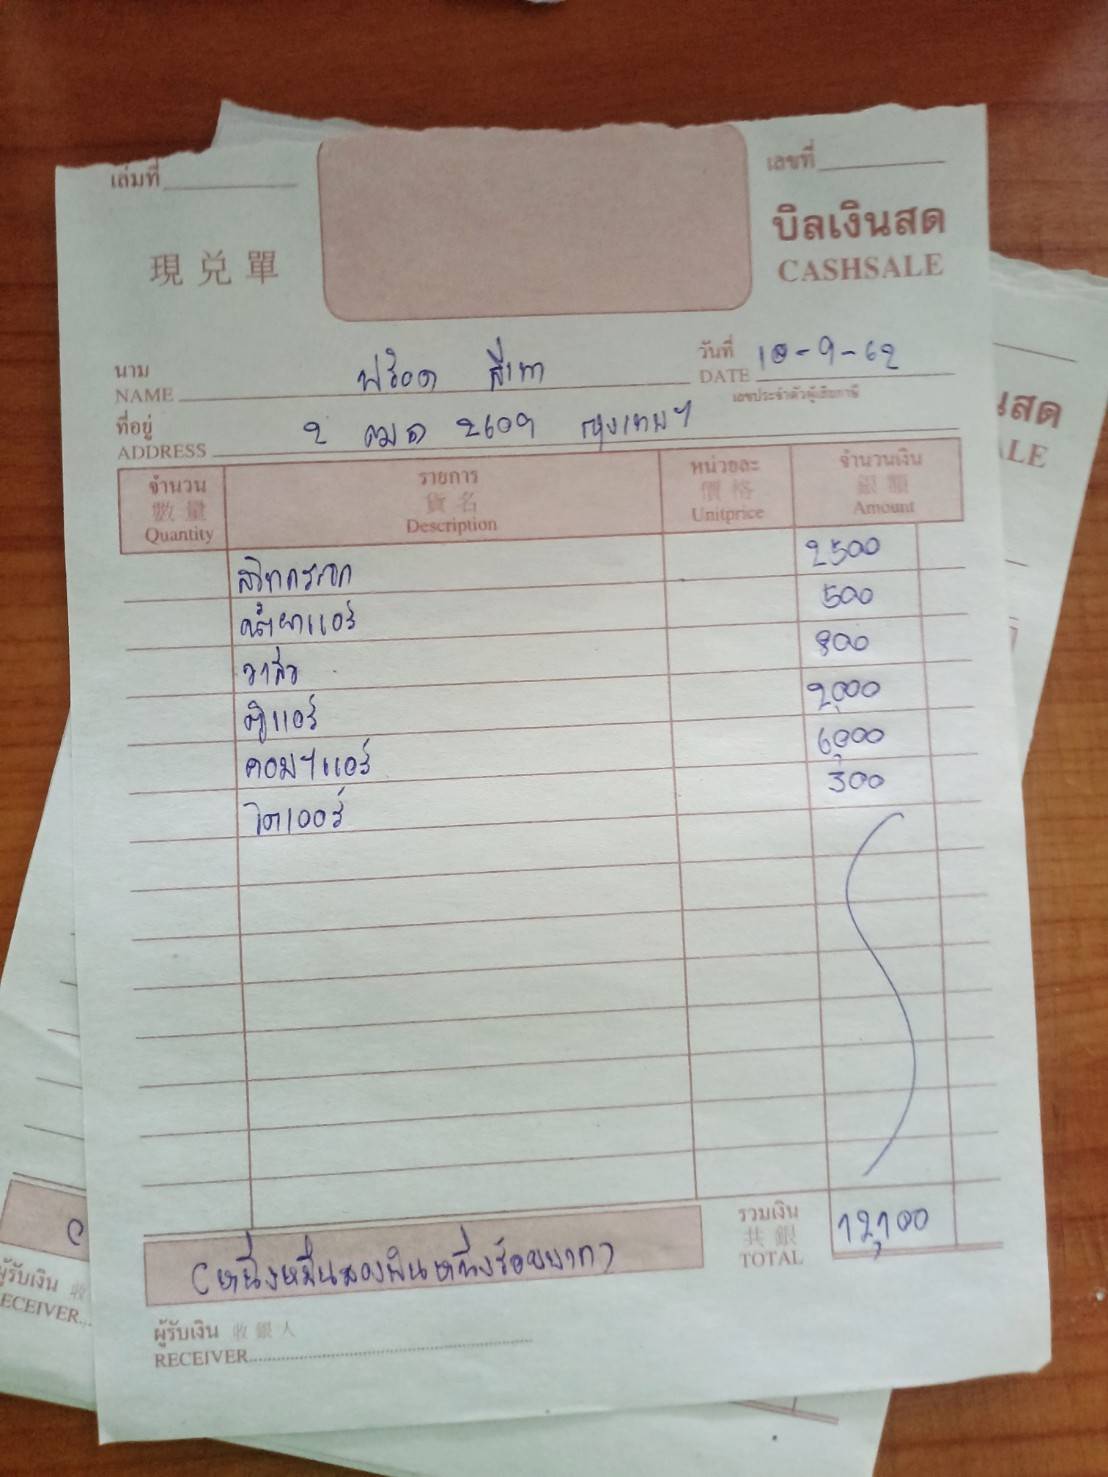 เล่มที่
เลขที่
現兑單
บิลเงินสด
CASHSALE
นาม
NAME ฟร้อด สีเทา
วันที่
DATE 10-9-62
เลขประจำตัวผู้เสียภาษี
ที่อยู่
ADDRESS 2 ฒฌ 2609 กรุงเทพฯ
จำนวน 數量 Quantity
รายการ 貨名 Description
หน่วยละ 價格 Unitprice
จำนวนเงิน 銀額 Amount
สวิทกระจก 2500
น้ำยาแอร์ 500
วาล์ว 800
ตู้แอร์ 2,000
คอมฯแอร์ 6,000
ไดเออร์ 300
รวมเงิน
共銀
TOTAL 12,100
(หนึ่งหมื่นสองพันหนึ่งร้อยบาท)
ผู้รับเงิน 收銀人
RECEIVER
สด
ALE
ผู้รับเงิน
ECEIVER